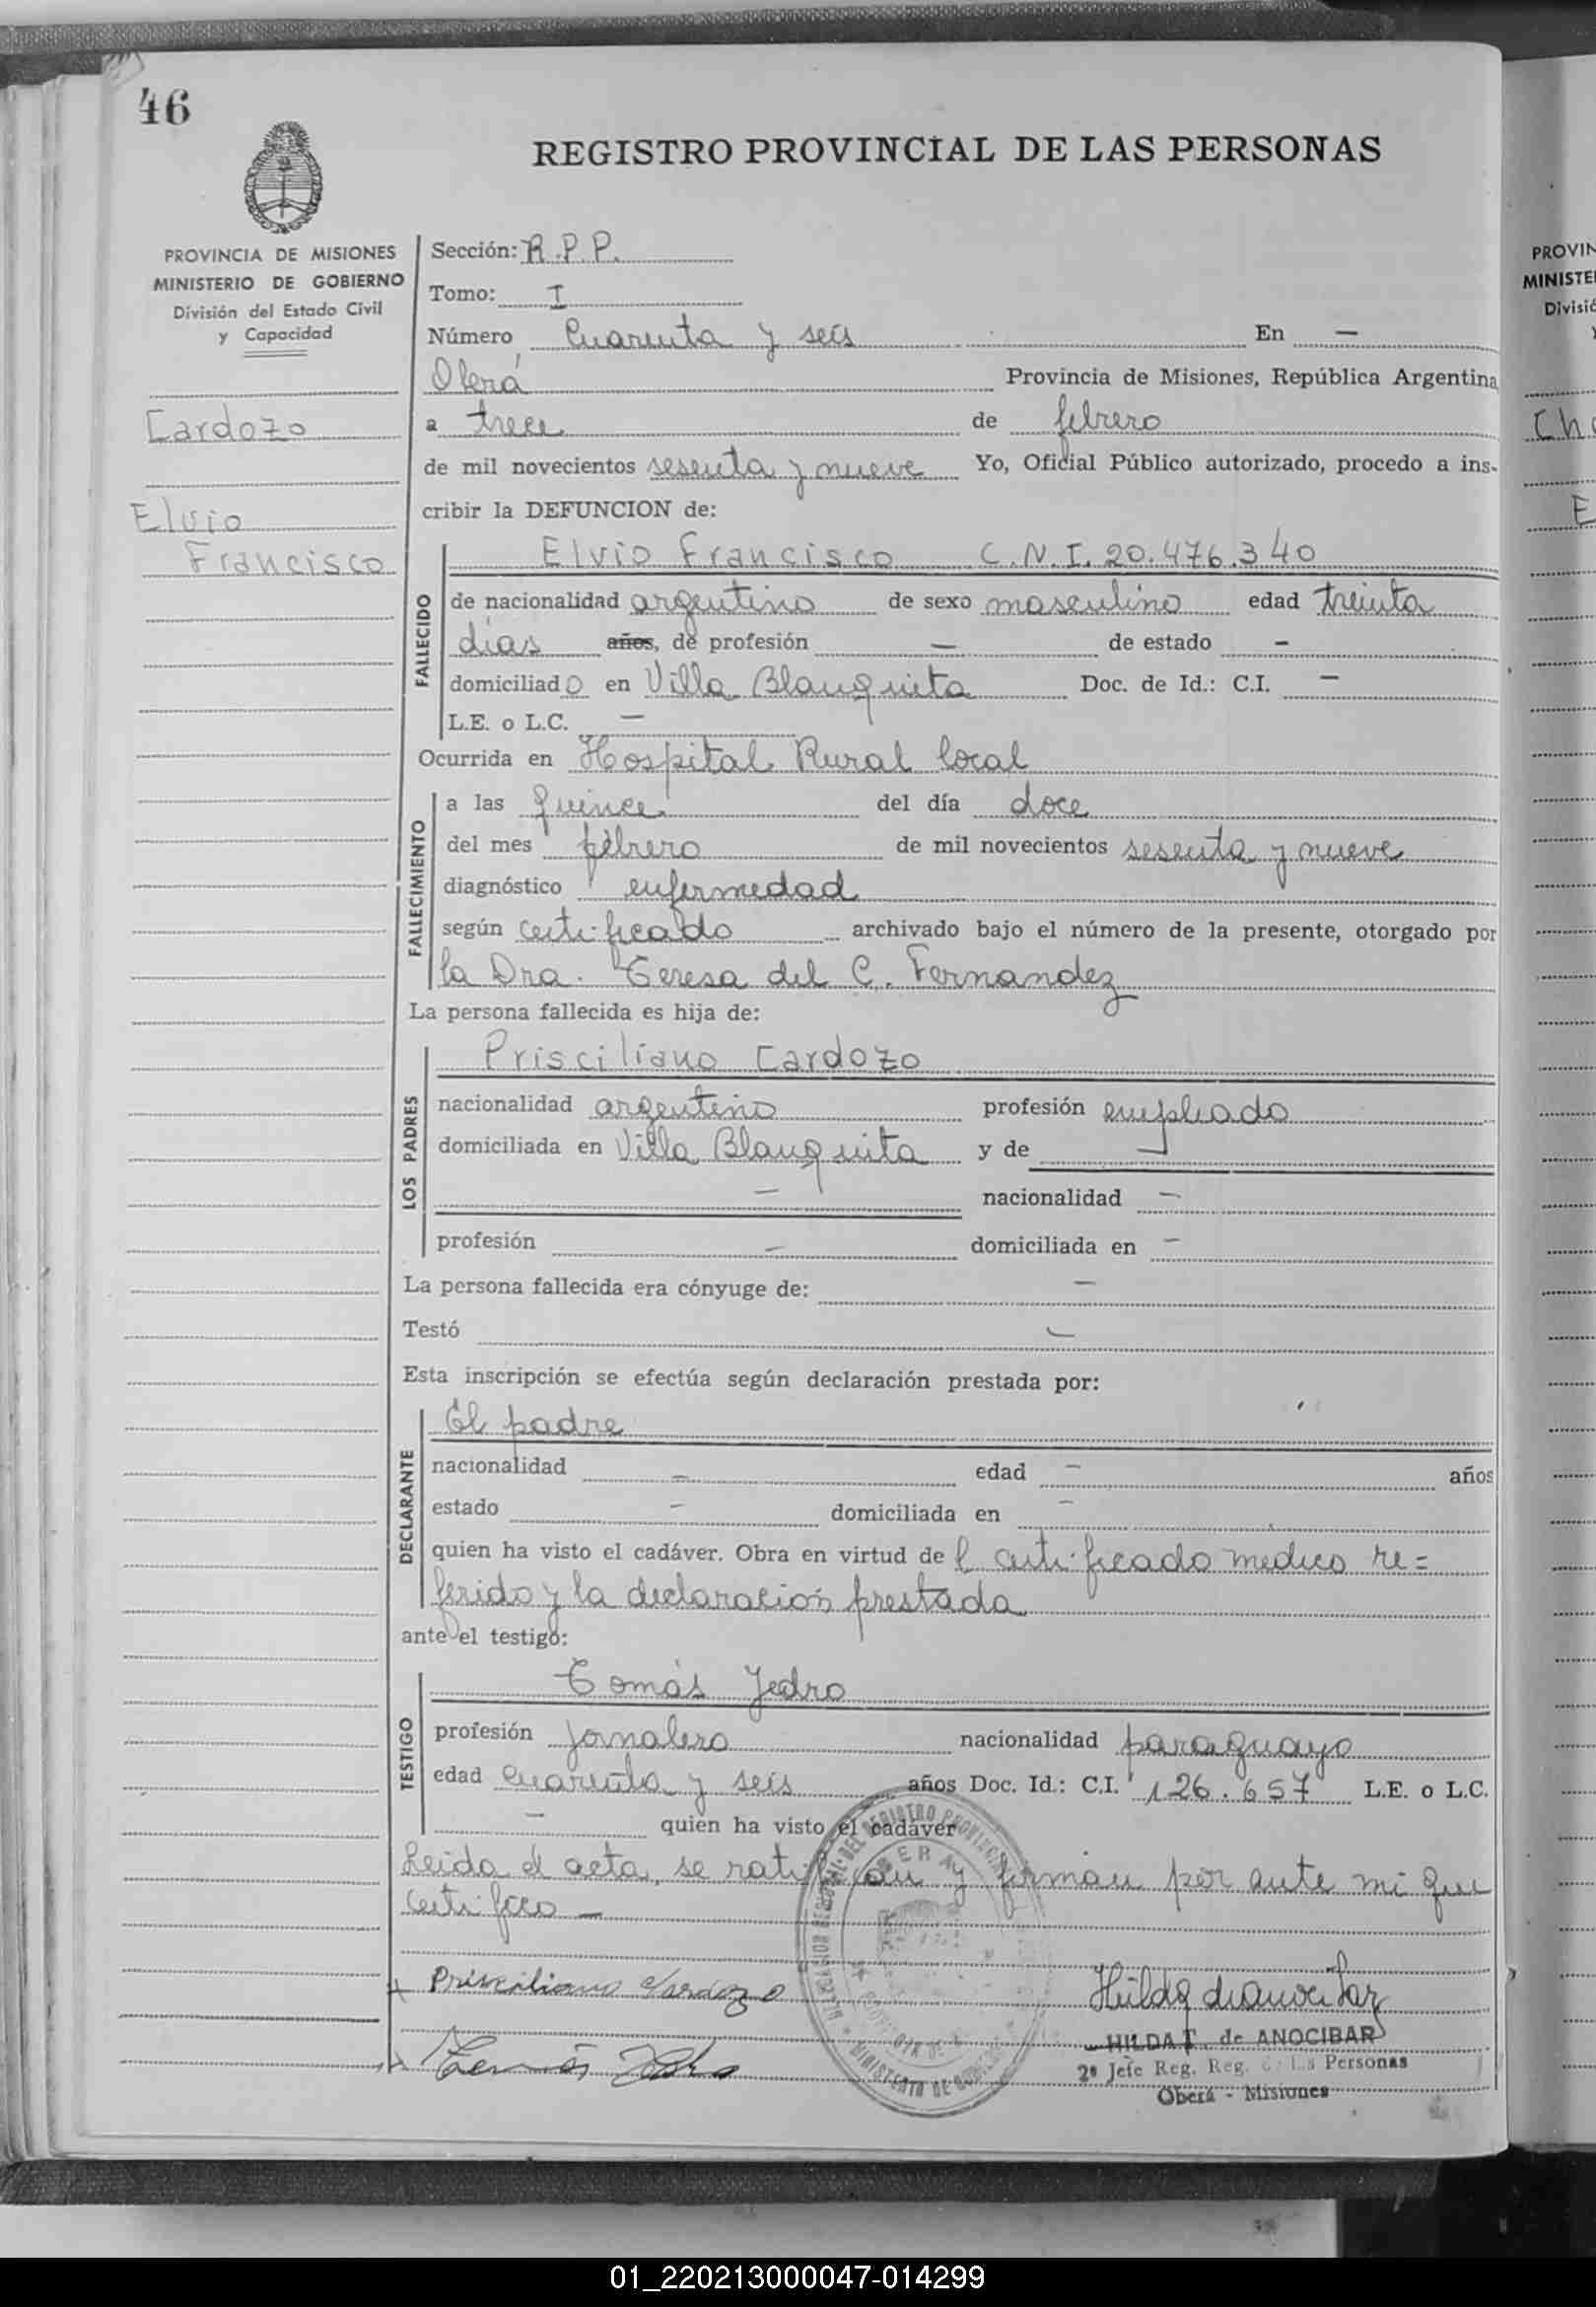 46
REGISTRO PROVINCIAL DE LAS PERSONAS
PROVINCIA DE MISIONES
MINISTERIO DE GOBIERNO
División del Estado Civil
y Capacidad
Cardozo
Elvio
Francisco
Sección: R.P.P.
Tomo: I
Número Cuarenta y seis En —
Oberá Provincia de Misiones, República Argentina
a trece de febrero
de mil novecientos sesenta y nueve Yo, Oficial Público autorizado, procedo a ins-
cribir la DEFUNCION de:
FALLECIDO
Elvio Francisco C.N.I. 20.476.340
de nacionalidad argentino de sexo masculino edad treinta
días años, de profesión — de estado —
domiciliado en Villa Blanquita Doc. de Id.: C.I. —
L.E. o L.C. —
Ocurrida en Hospital Rural local
FALLECIMIENTO
a las quince del día doce
del mes febrero de mil novecientos sesenta y nueve
diagnóstico enfermedad
según certificado archivado bajo el número de la presente, otorgado por
la Dra. Teresa del C. Fernandez
La persona fallecida es hija de:
LOS PADRES
Prisciliano Cardozo
nacionalidad argentino profesión empleado
domiciliada en Villa Blanquita y de —
— nacionalidad —
profesión — domiciliada en —
La persona fallecida era cónyuge de: —
Testó —
Esta inscripción se efectúa según declaración prestada por:
DECLARANTE
El padre
nacionalidad — edad — años
estado — domiciliada en —
quien ha visto el cadáver. Obra en virtud de l certificado medico re=
ferido y la declaración prestada
ante el testigo:
TESTIGO
Tomás Jedro
profesión jornalero nacionalidad paraguayo
edad cuarenta y seis años Doc. Id.: C.I. 126.657 L.E. o L.C.
— quien ha visto el cadáver
Leida el acta, se ratifican y firman por ante mi que
certifico —
Prisciliano Cardozo
HILDA T. de ANOCIBAR
2º Jefe Reg. Reg. de las Personas
Oberá - Misiones
PROVIN
MINISTE
Divisió
E
01_220213000047-014299